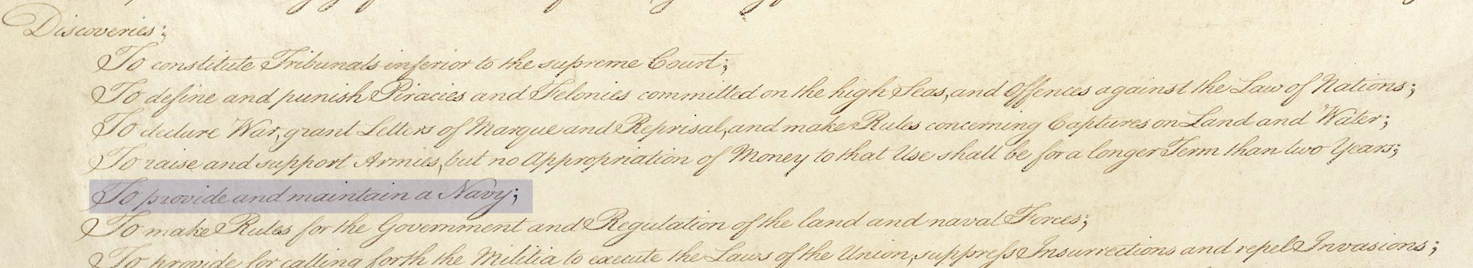 Discoveries;
To constitute Tribunals inferior to the supreme Court;
To define and punish Piracies and Felonies committed on the high Seas, and Offences against the Law of Nations;
To declare War, grant Letters of Marque and Reprisal, and make Rules concerning Captures on Land and Water;
To raise and support Armies, but no Appropriation of Money to that Use shall be for a longer Term than two Years;
To provide and maintain a Navy;
To make Rules for the Government and Regulation of the land and naval Forces;
To provide for calling forth the Militia to execute the Laws of the Union, suppress Insurrections and repel Invasions;